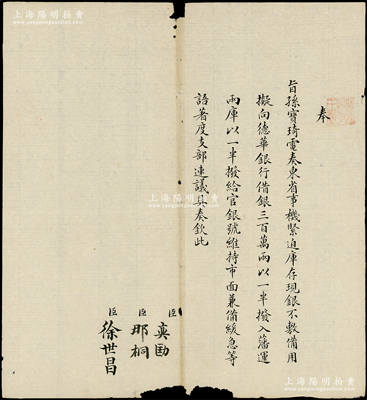 上海陽明拍賣
奉
旨孫寶琦電奏東省事機緊迫庫存現銀不敷備用
擬向德華銀行借銀三百萬兩以一半撥入藩運
兩庫以一半撥給官銀號維持市面兼備緩急等
語著度支部速議具奏欽此
臣奕劻
臣那桐
臣徐世昌
上海陽明拍賣